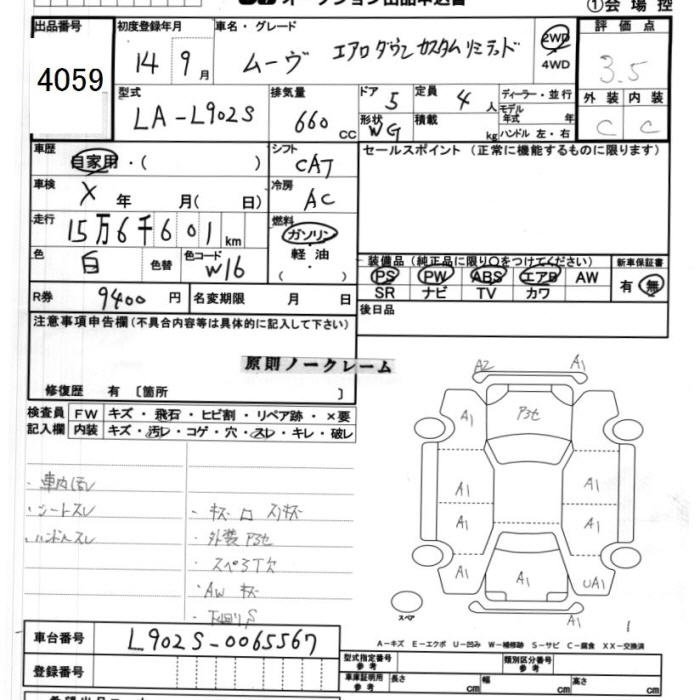 オークション出品申込書 ①会場控
出品番号 初度登録年月 車名・グレード 評価点
4059 14 9月 ムーヴ エアロダウンカスタムリミテッド 2WD 4WD 3.5
型式 排気量 ドア 5 定員 4人 ディーラー・並行 外装 内装
LA-L902S 660cc 形状 WG 積載 kg モデル年式 年 C C
ハンドル 左・右
車歴 自家用・( ) シフト CAT セールスポイント (正常に機能するものに限ります)
車検 X 年 月( 日) 冷房 AC
走行 15万6千601km 燃料 ガソリン
軽油・( )
色 白 色替 色コード W16 装備品 (純正品に限り○をつけてください) 新車保証書
PS PW ABS エアB AW 有 無
SR ナビ TV カワ
R券 9400円 名変期限 月 日 後日品
注意事項申告欄(不具合内容等は具体的に記入して下さい)
原則ノークレーム
修復歴 有〔箇所 〕
検査員記入欄 FW キズ・飛石・ヒビ割・リペア跡・×要
内装 キズ・汚レ・コゲ・穴・スレ・キレ・破レ
A2 A1
A1 Pヨセ A1
A1 A1
A1 A1
A1 A1 UA1
A1
・車内汚レ
・シートスレ
・ハンドルスレ
・キズ 凹 スリキズ
・外装Pヨセ
・スペアT欠
・AWキズ
・下回りS
スペア 1
A-キズ E-エクボ U-凹み W-補修跡 S-サビ C-腐食 XX-交換済
車台番号 L902S-0065567
型式指定番号 参考 類別区分番号 参考
登録番号 車庫証明用参考 長さ cm 幅 cm 高さ cm